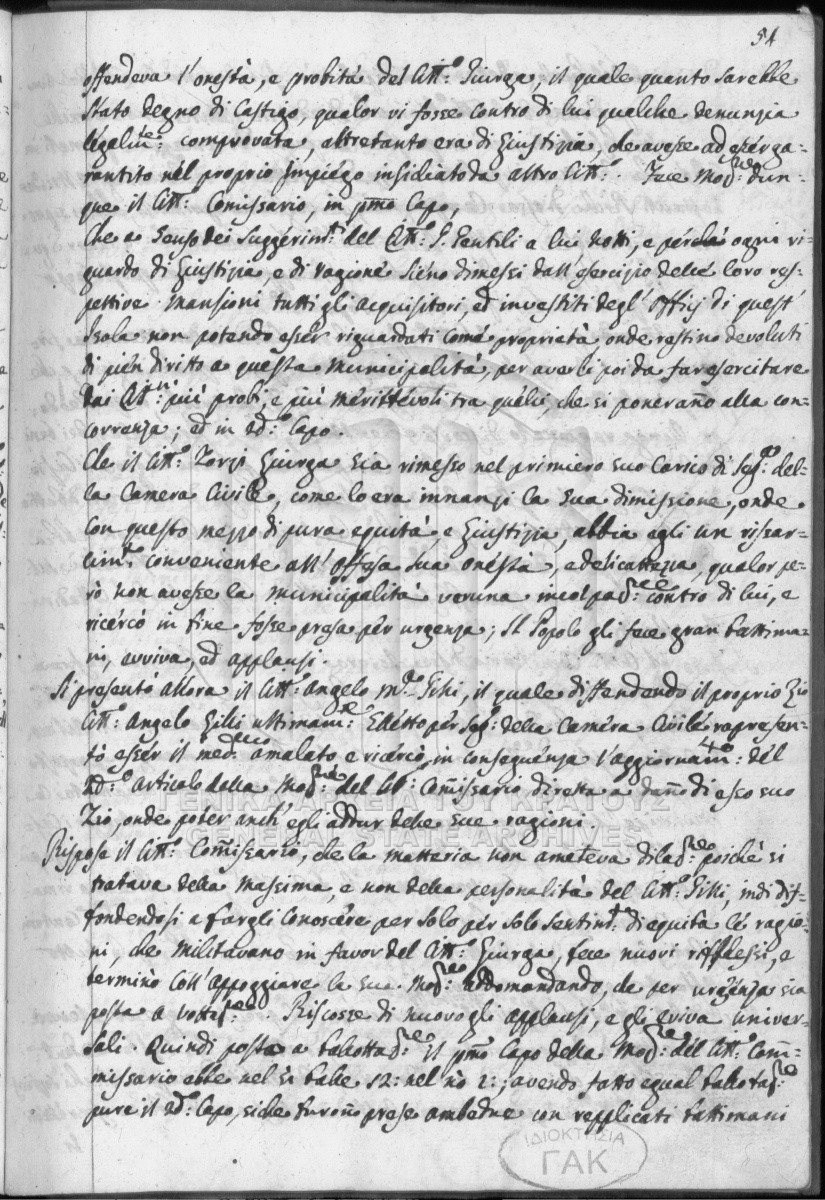 54
offendeva l'onestà, e probità del Citt:º Giurga, il quale quanto sarebbe
stato degno di Castigo, qualor vi fosse contro di lui qualche denunzia
legalm:te comprovata, altretanto era di Giustizia, che avesse ad esser ga-
rantito nel proprio Impiego insidiato da altro Citt:º. Fece Moz:ne dun-
que il Citt:º Comissario, in pmo Capo,
Che a senso dei suggerim:ti del Citt:º P. Gentili a lui notti, e perchè ogni ri-
guardo di Giustizia, e di ragione sieno dimessi dall'esercizio delle loro res-
pettive mansioni tutti gli acquisitori, ed investiti degl'Offizj di quest'
Isola non potendo esser riguardati come proprietà onde restino devoluti
di pien diritto a questa Municipalità, per averli poi da far esercitare
dai Citt:ni più probi, e più merittevoli tra quelli, che si poneranño alla con-
correnza; ed in 2d:º Capo.
Che il Citt:º Zorzi Giurga sia rimesso nel primiero suo Carico di Seg:rio del-
la Camera Civile, come lo era innanzi la sua dimissione, onde
con questo mezzo di pura equità e Giustizia, abbia egli un risar-
cim:to conveniente all'offesa sua onestà, e delicattezza, qualor pe-
rò non avesse la Municipalità veruna incolpaz:ne contro di lui, e
ricercò in fine fosse presa per urgenza; Il Popolo gli fece gran battima-
ni, evviva, ed applausi.
Si presentò allora il Citt:º Angelo m:a Gilli, il quale diffendendo il proprio Zio
Citt:º Angelo Gilli ultimam:te Elletto per Seg:º della Camera Civile rapresen-
tò esser il med:mo amalato e ricercò in conseguenza l'aggiornam:to del
2d:º articolo dalla Moz:ne del Citt:º Comissario diretta a daño di esso suo
Zio, onde poter anch'egli addur delle sue ragioni.
Rispose il Citt:º Comissario, che la matteria non ameteva dilaz:ne poichè si
tratava della Massima, e non della personalità del Citt:º Gilli, indi dif-
fondendosi a fargli Conoscere per solo per solo sentim:to di equità le ragio-
ni, che militavano in favor del Citt:º Giurga, fece nuovi riflessi, e
terminò coll'appoggiare la sua Moz:ne addomandando, che per urgenza sia
posta a vottaz:ne. Riscosse di nuovo gli applausi, e gli eviva univer-
sali. Quindi posta a ballottaz:ne il pmo Capo della Moz:ne del Citt:º Com-
missario ebbe nel sì balle 12: nel nò 2:; avendo fatto egual ballotaz:ne
pure il 2d:º Capo, siche furoño prese ambedue con repplicati battimani
ΓΕΝΙΚΑ ΑΡΧΕΙΑ ΤΟΥ ΚΡΑΤΟΥΣ
GENERAL STATE ARCHIVES
ΙΔΙΟΚΤΗΣΙΑ
ΓΑΚ